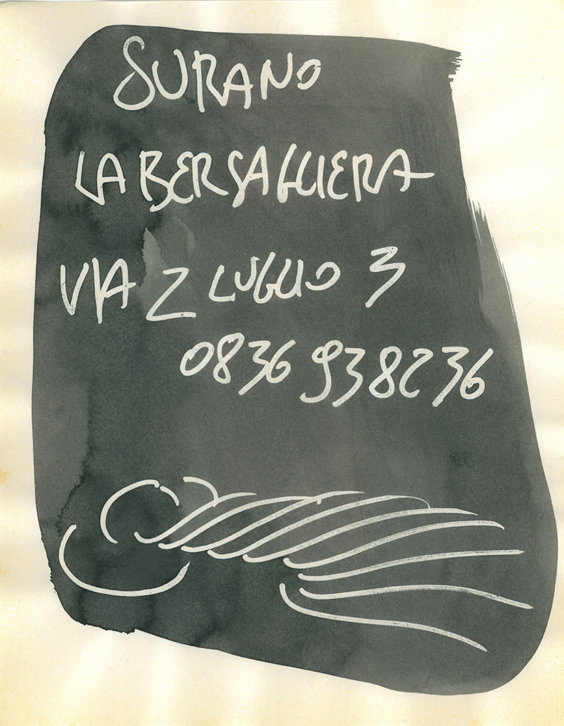 SURANO
LA BERSAGLIERA
VIA 2 LUGLIO 3
0836 938236